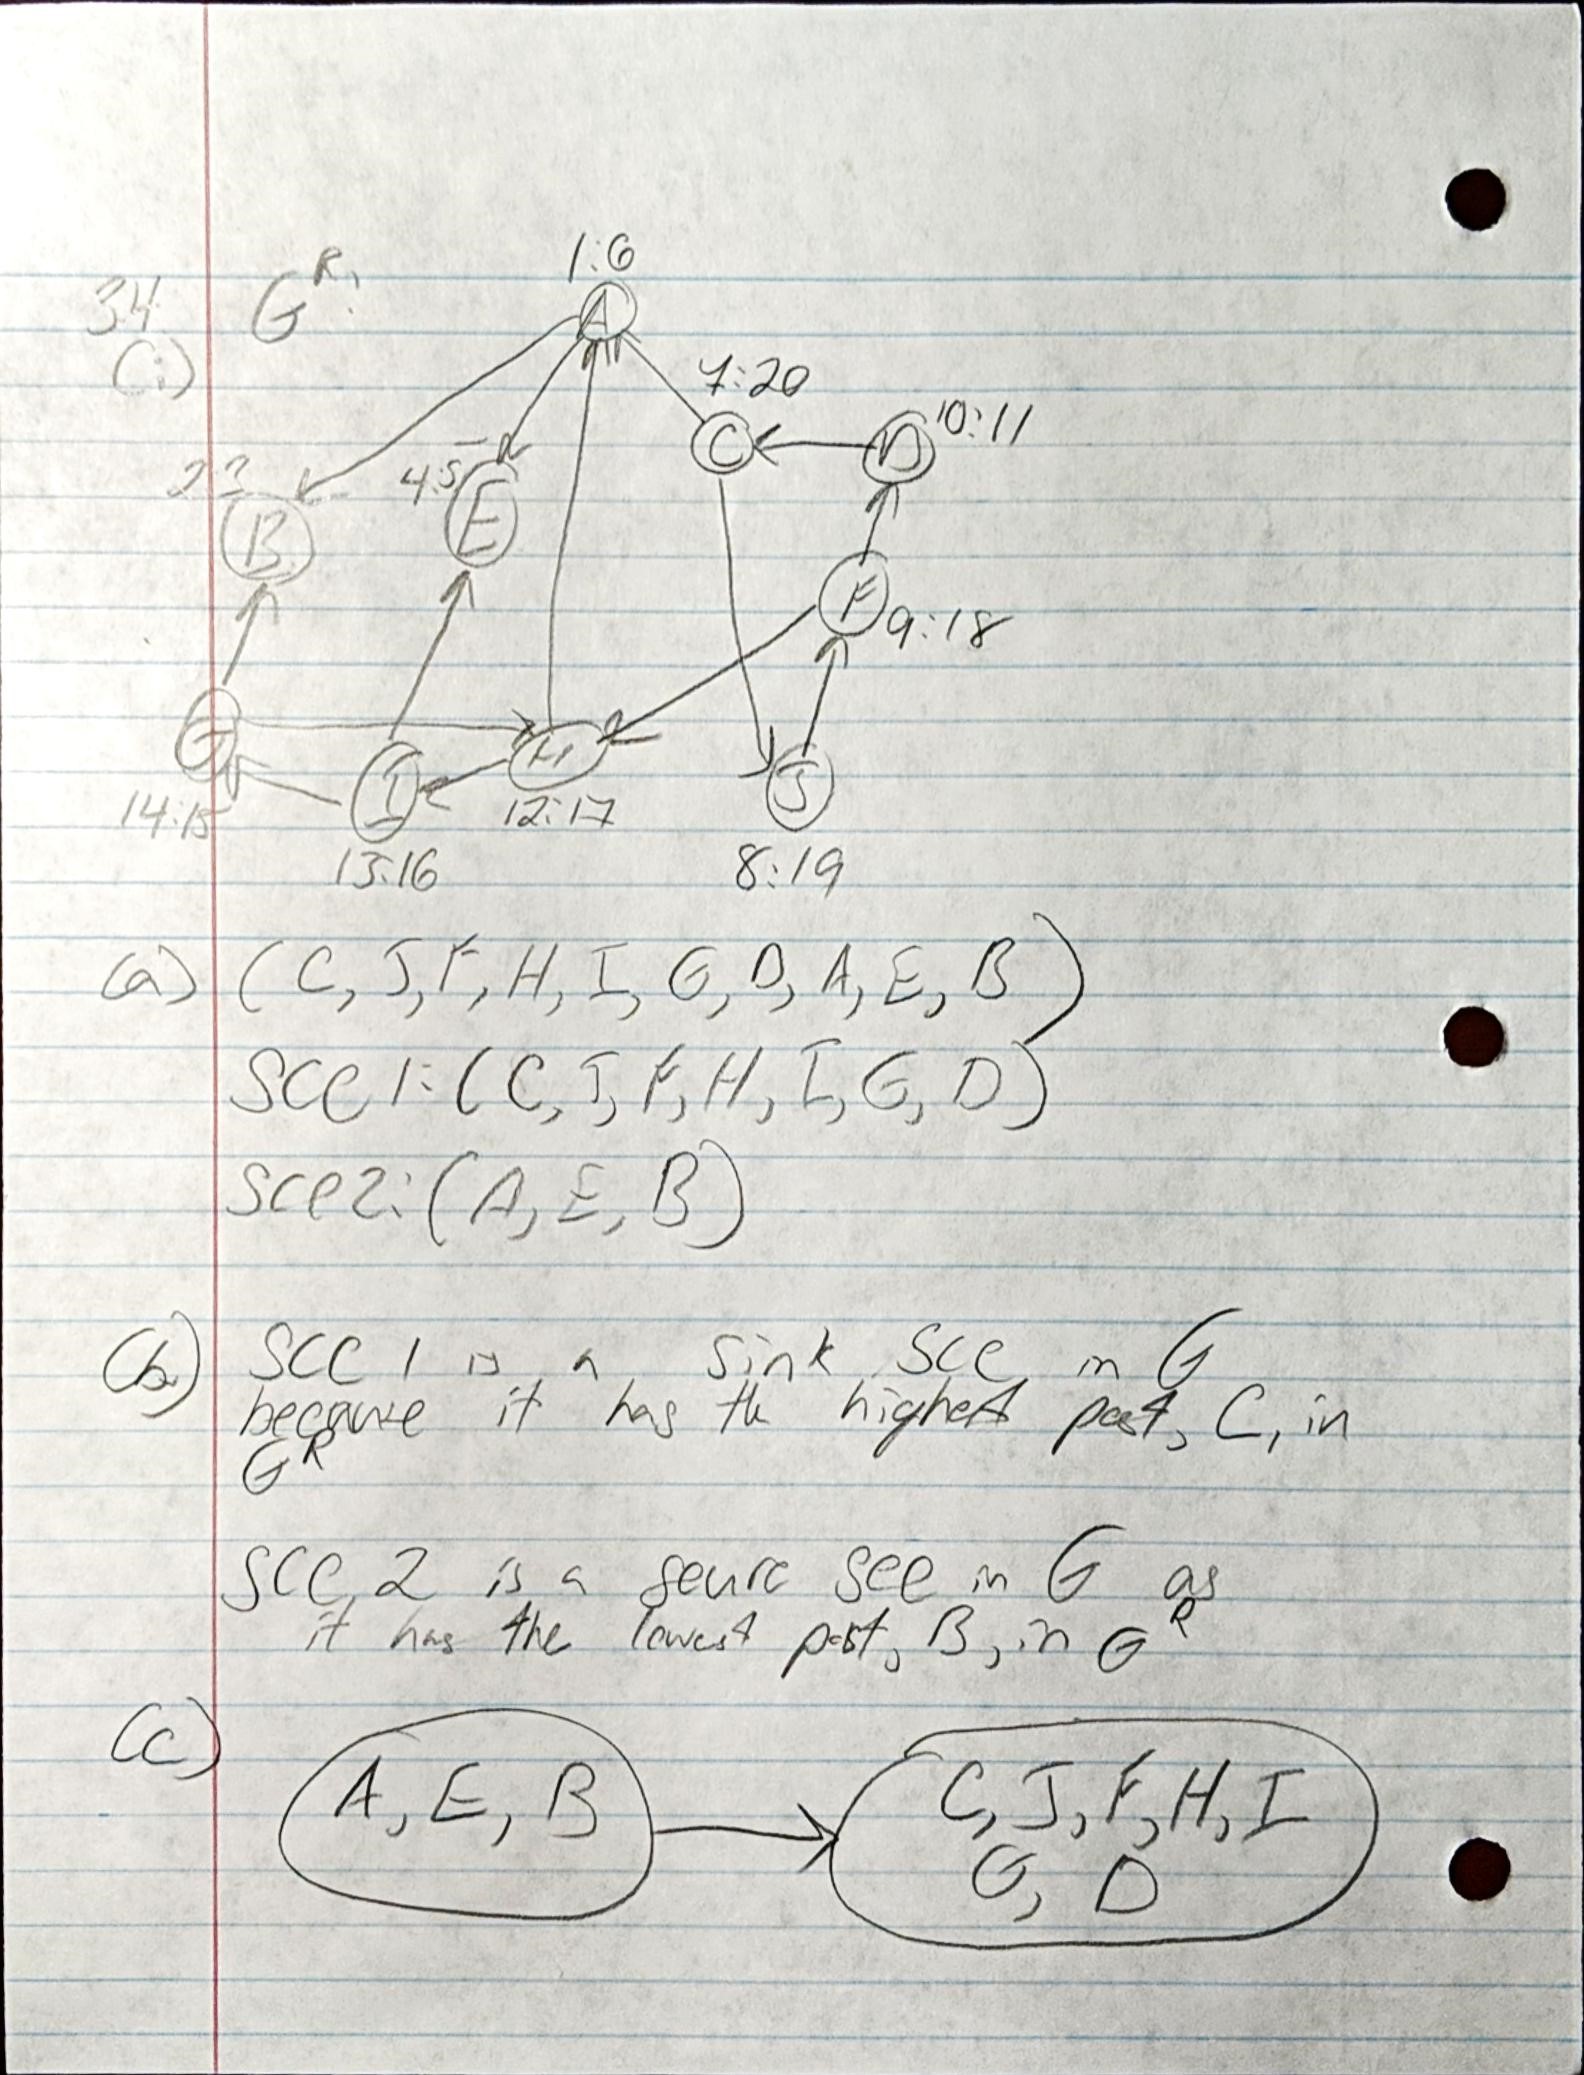 3.4 G^R:
(i)
1:6
A
7:20
C
D 10:11
B
4:5
E
F 9:18
G
14:15
I
13:16
H
12:17
J
8:19
(a) (C, J, F, H, I, G, D, A, E, B)
SCC 1: (C, J, F, H, I, G, D)
SCC 2: (A, E, B)
(b) SCC 1 is a sink SCC in G
because it has the highest post, C, in
G^R
SCC 2 is a sourc SCC in G as
it has the lowest post, B, in G^R
(c)
A, E, B
C, J, F, H, I
G, D